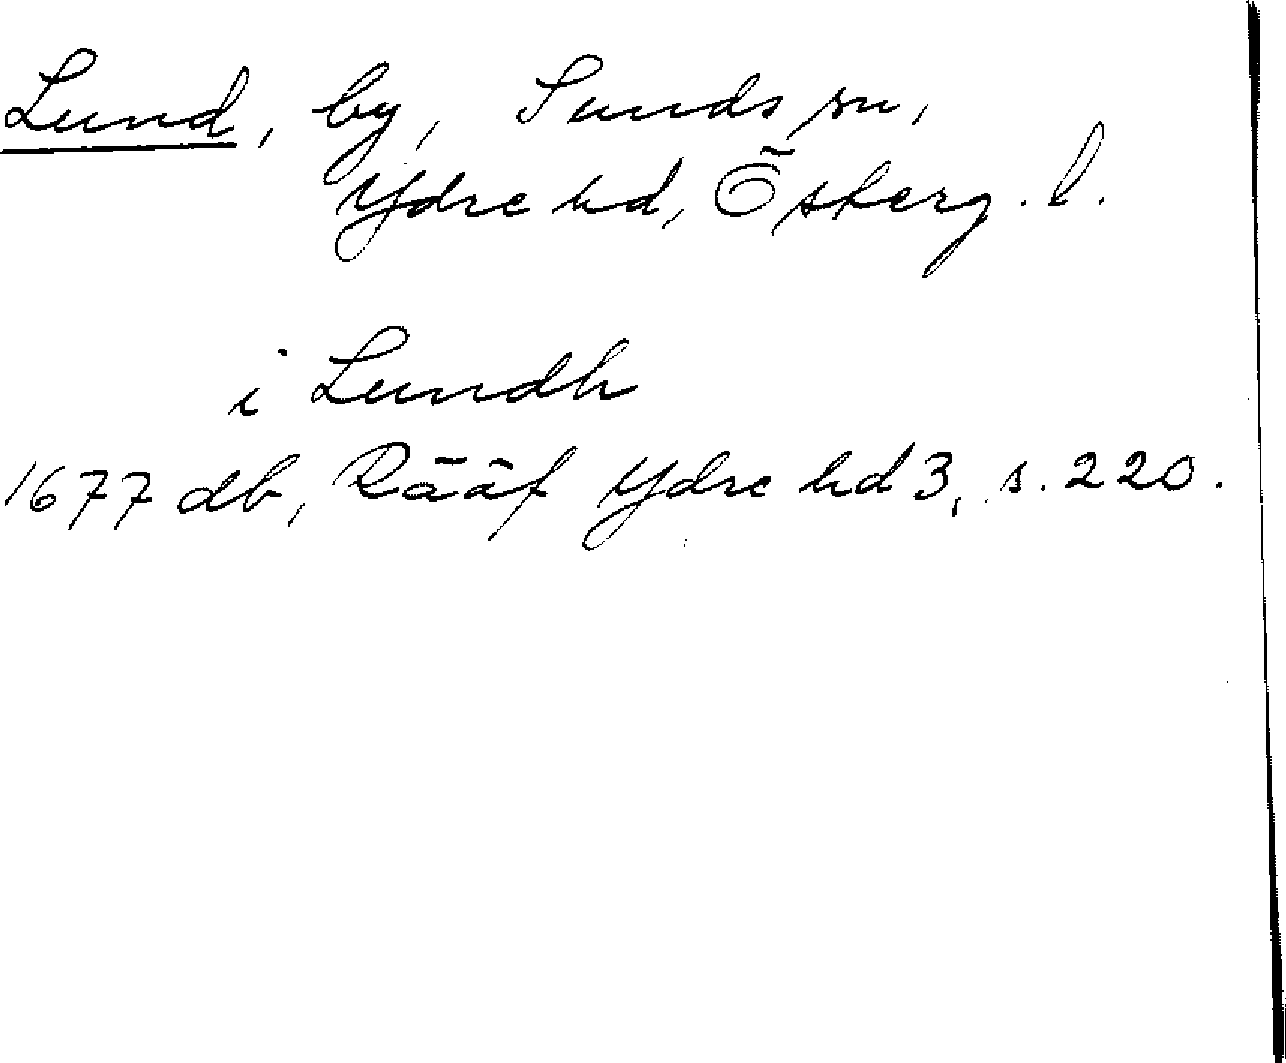 Lund, by, Sunds sn,
Ydre hd, Östergl.
i Lundh
1677 db, Rääf Ydre hd 3, s. 220.